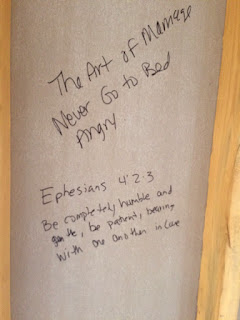 The Art of Marriage
Never Go to Bed
Angry
Ephesians 4:2-3
Be completely humble and
gentle, be patient, bearing
with one another in love